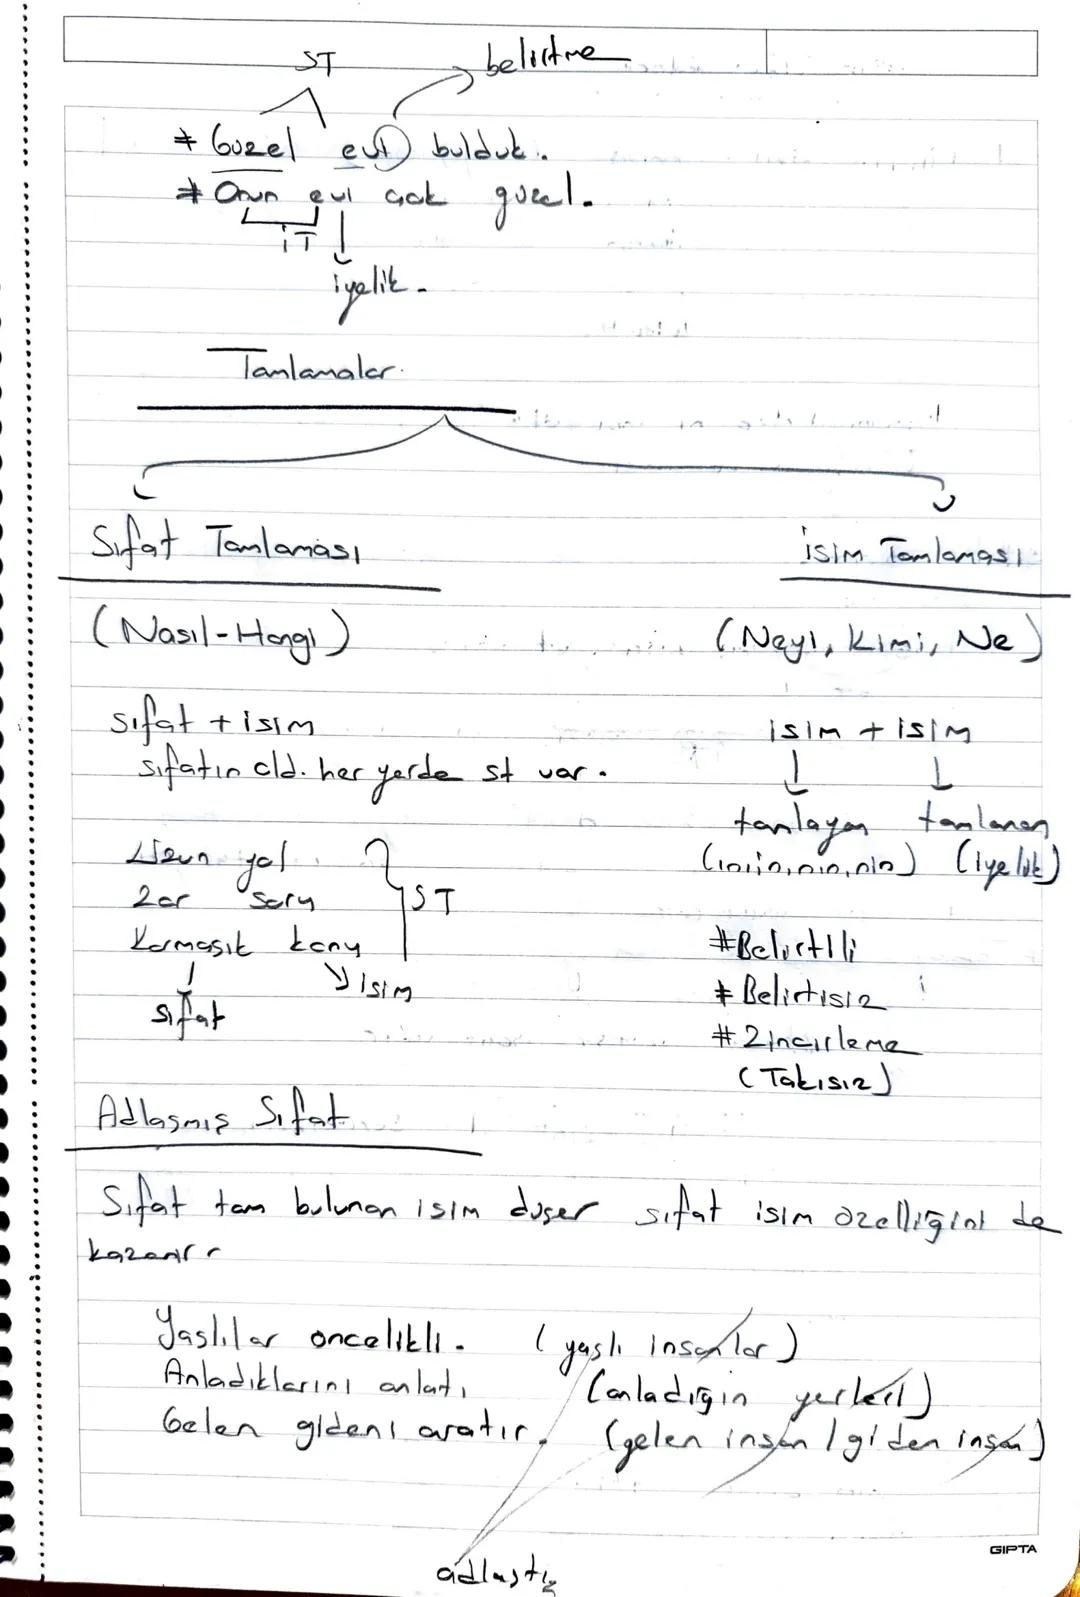 ST belirtme
# Güzel evi bulduk.
# Onun evi çok güzel.
iT
iyelik.
Tamlamalar.
Sıfat Tamlaması
isim Tamlaması
(Nasıl-Hangi)
(Neyi, Kimi, Ne)
sıfat + isim
isim + isim
sıfatın old. her yerde st var.
tamlayan tamlanan
(ın,in,nın,nin) (iyelik)
Uzun yol
Zor soru
ST
Karmaşık konu
isim
sıfat
#Belirtili
# Belirtisiz
# Zincirleme
(Takısız)
Adlaşmış Sıfat
Sıfat tam bulunan isim düşer sıfat isim özelliğini de
kazanır
Yaşlılar öncelikli. (yaşlı insanlar)
Anladıklarını anlatı (anladığın yerleri)
Gelen gideni aratır. (gelen insan / giden insan)
adlaştı
GIPTA